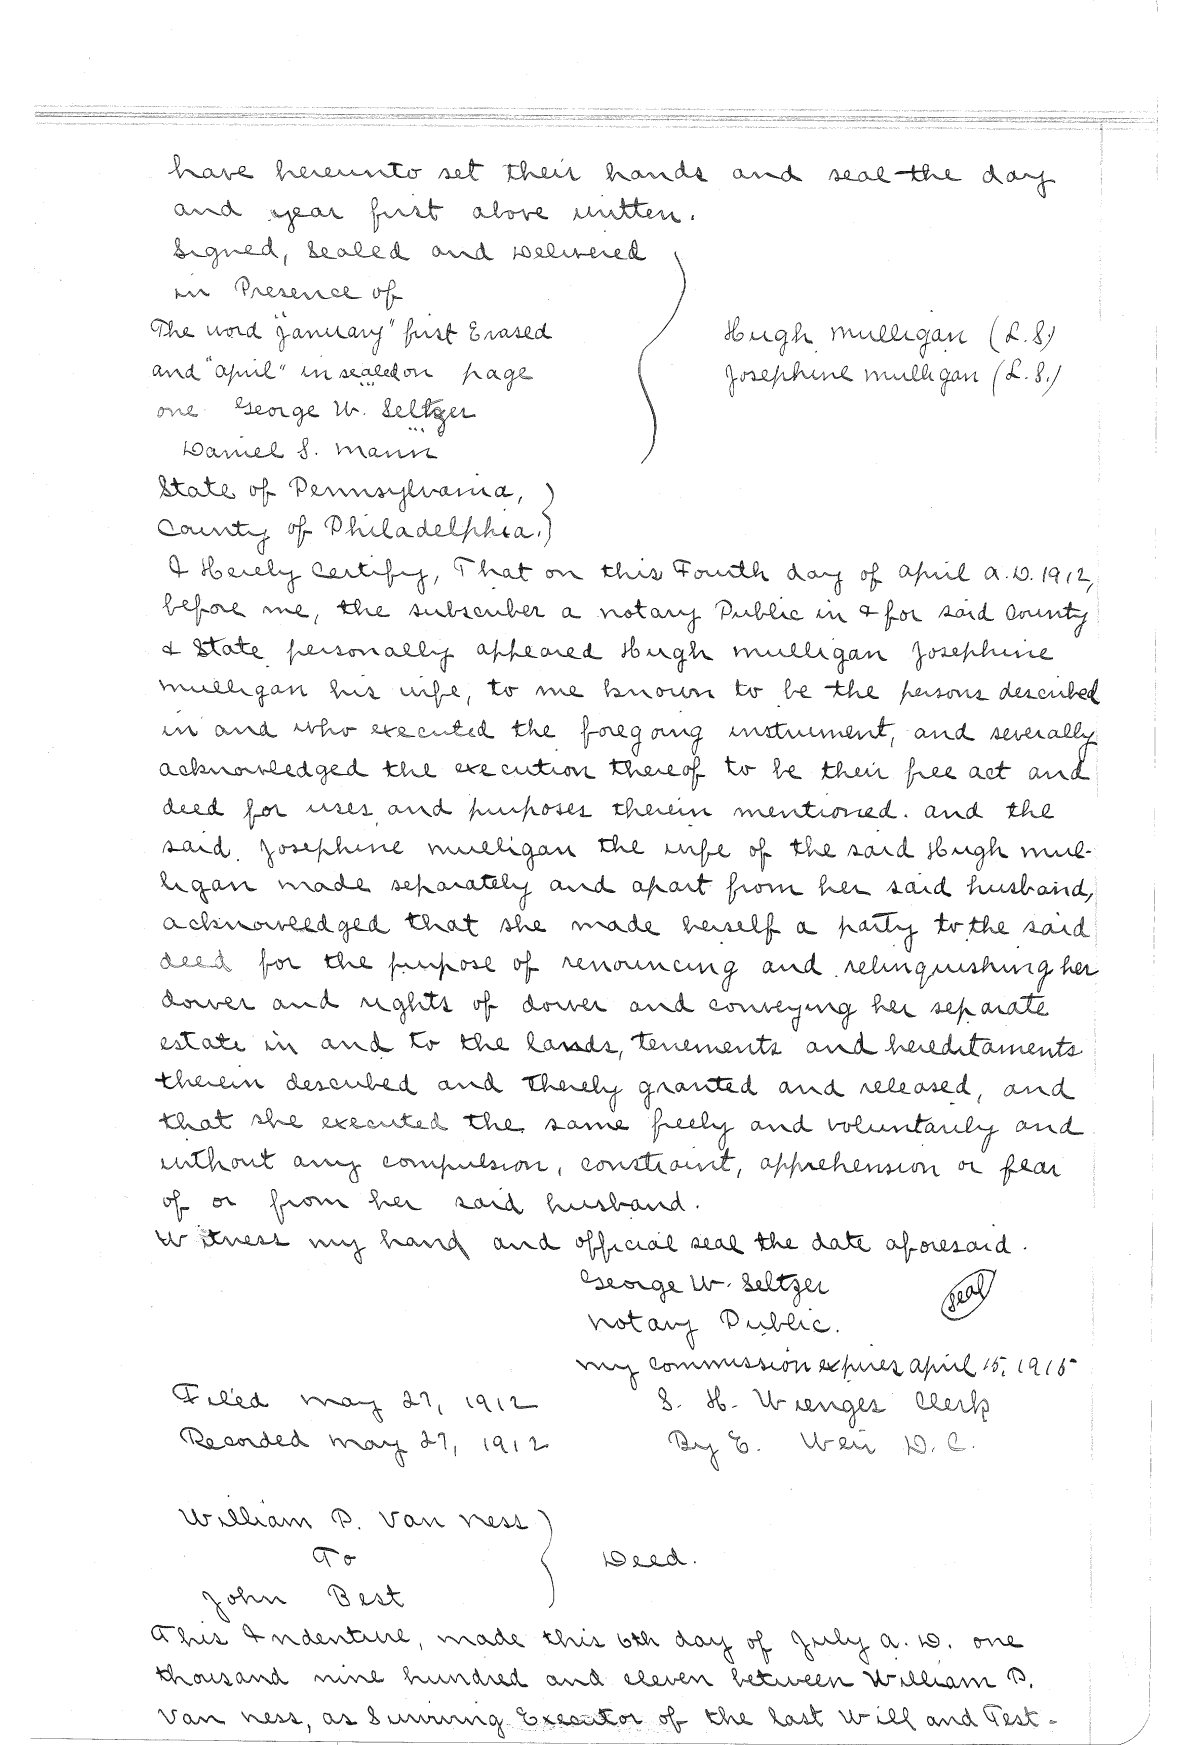 have hereunto set their hands and seal the day
and year first above written.
Signed, Sealed and Delivered
in Presence of
The word "January" first Erased
and "April" in sealed on page
one George W. Seltzer
Daniel S. Mann
Hugh Mulligan (L.S)
Josephine Mulligan (L.S.)
State of Pennsylvania,
County of Philadelphia.
I Hereby Certify, That on this Fourth day of April A.D. 1912,
before me, the subscriber a notary Public in & for said County
& State personally appeared Hugh Mulligan Josephine
Mulligan his wife, to me known to be the persons described
in and who executed the foregoing instrument, and severally
acknowledged the execution thereof to be their free act and
deed for uses and purposes therein mentioned. and the
said. Josephine Mulligan the wife of the said Hugh Mul-
ligan made separately and apart from her said husband,
acknowledged that she made herself a party to the said
deed for the purpose of renouncing and relinquishing her
dower and rights of dower and conveying her separate
estate in and to the lands, tenements and hereditaments
therein described and thereby granted and released, and
that she executed the same freely and voluntarily and
without any compulsion, constraint, apprehension or fear
of or from her said husband.
Witness my hand and official seal the date aforesaid.
George W. Seltzer
Notary Public.
Seal
My commission expires April 15, 1915
Filed May 27, 1912
S. H. Wienges Clerk
Recorded May 27, 1912
By E. Weir D.C.
William P. Van Ness
To
John Best
Deed.
This Indenture, made this 6th day of July A.D. one
thousand nine hundred and eleven between William P.
Van Ness, as Surviving Executor of the last Will and Test-